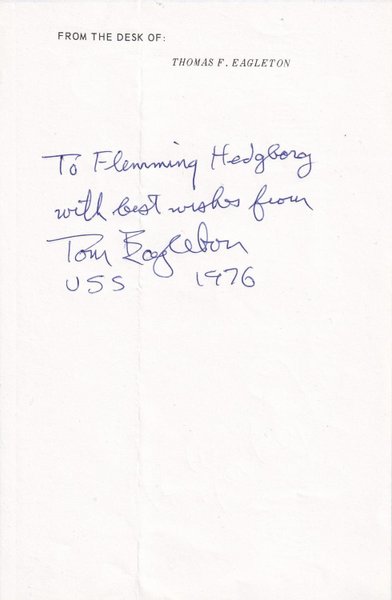 FROM THE DESK OF:
THOMAS F. EAGLETON
To Flemming Hedgborg
with best wishes from
Tom Eagleton
USS 1976